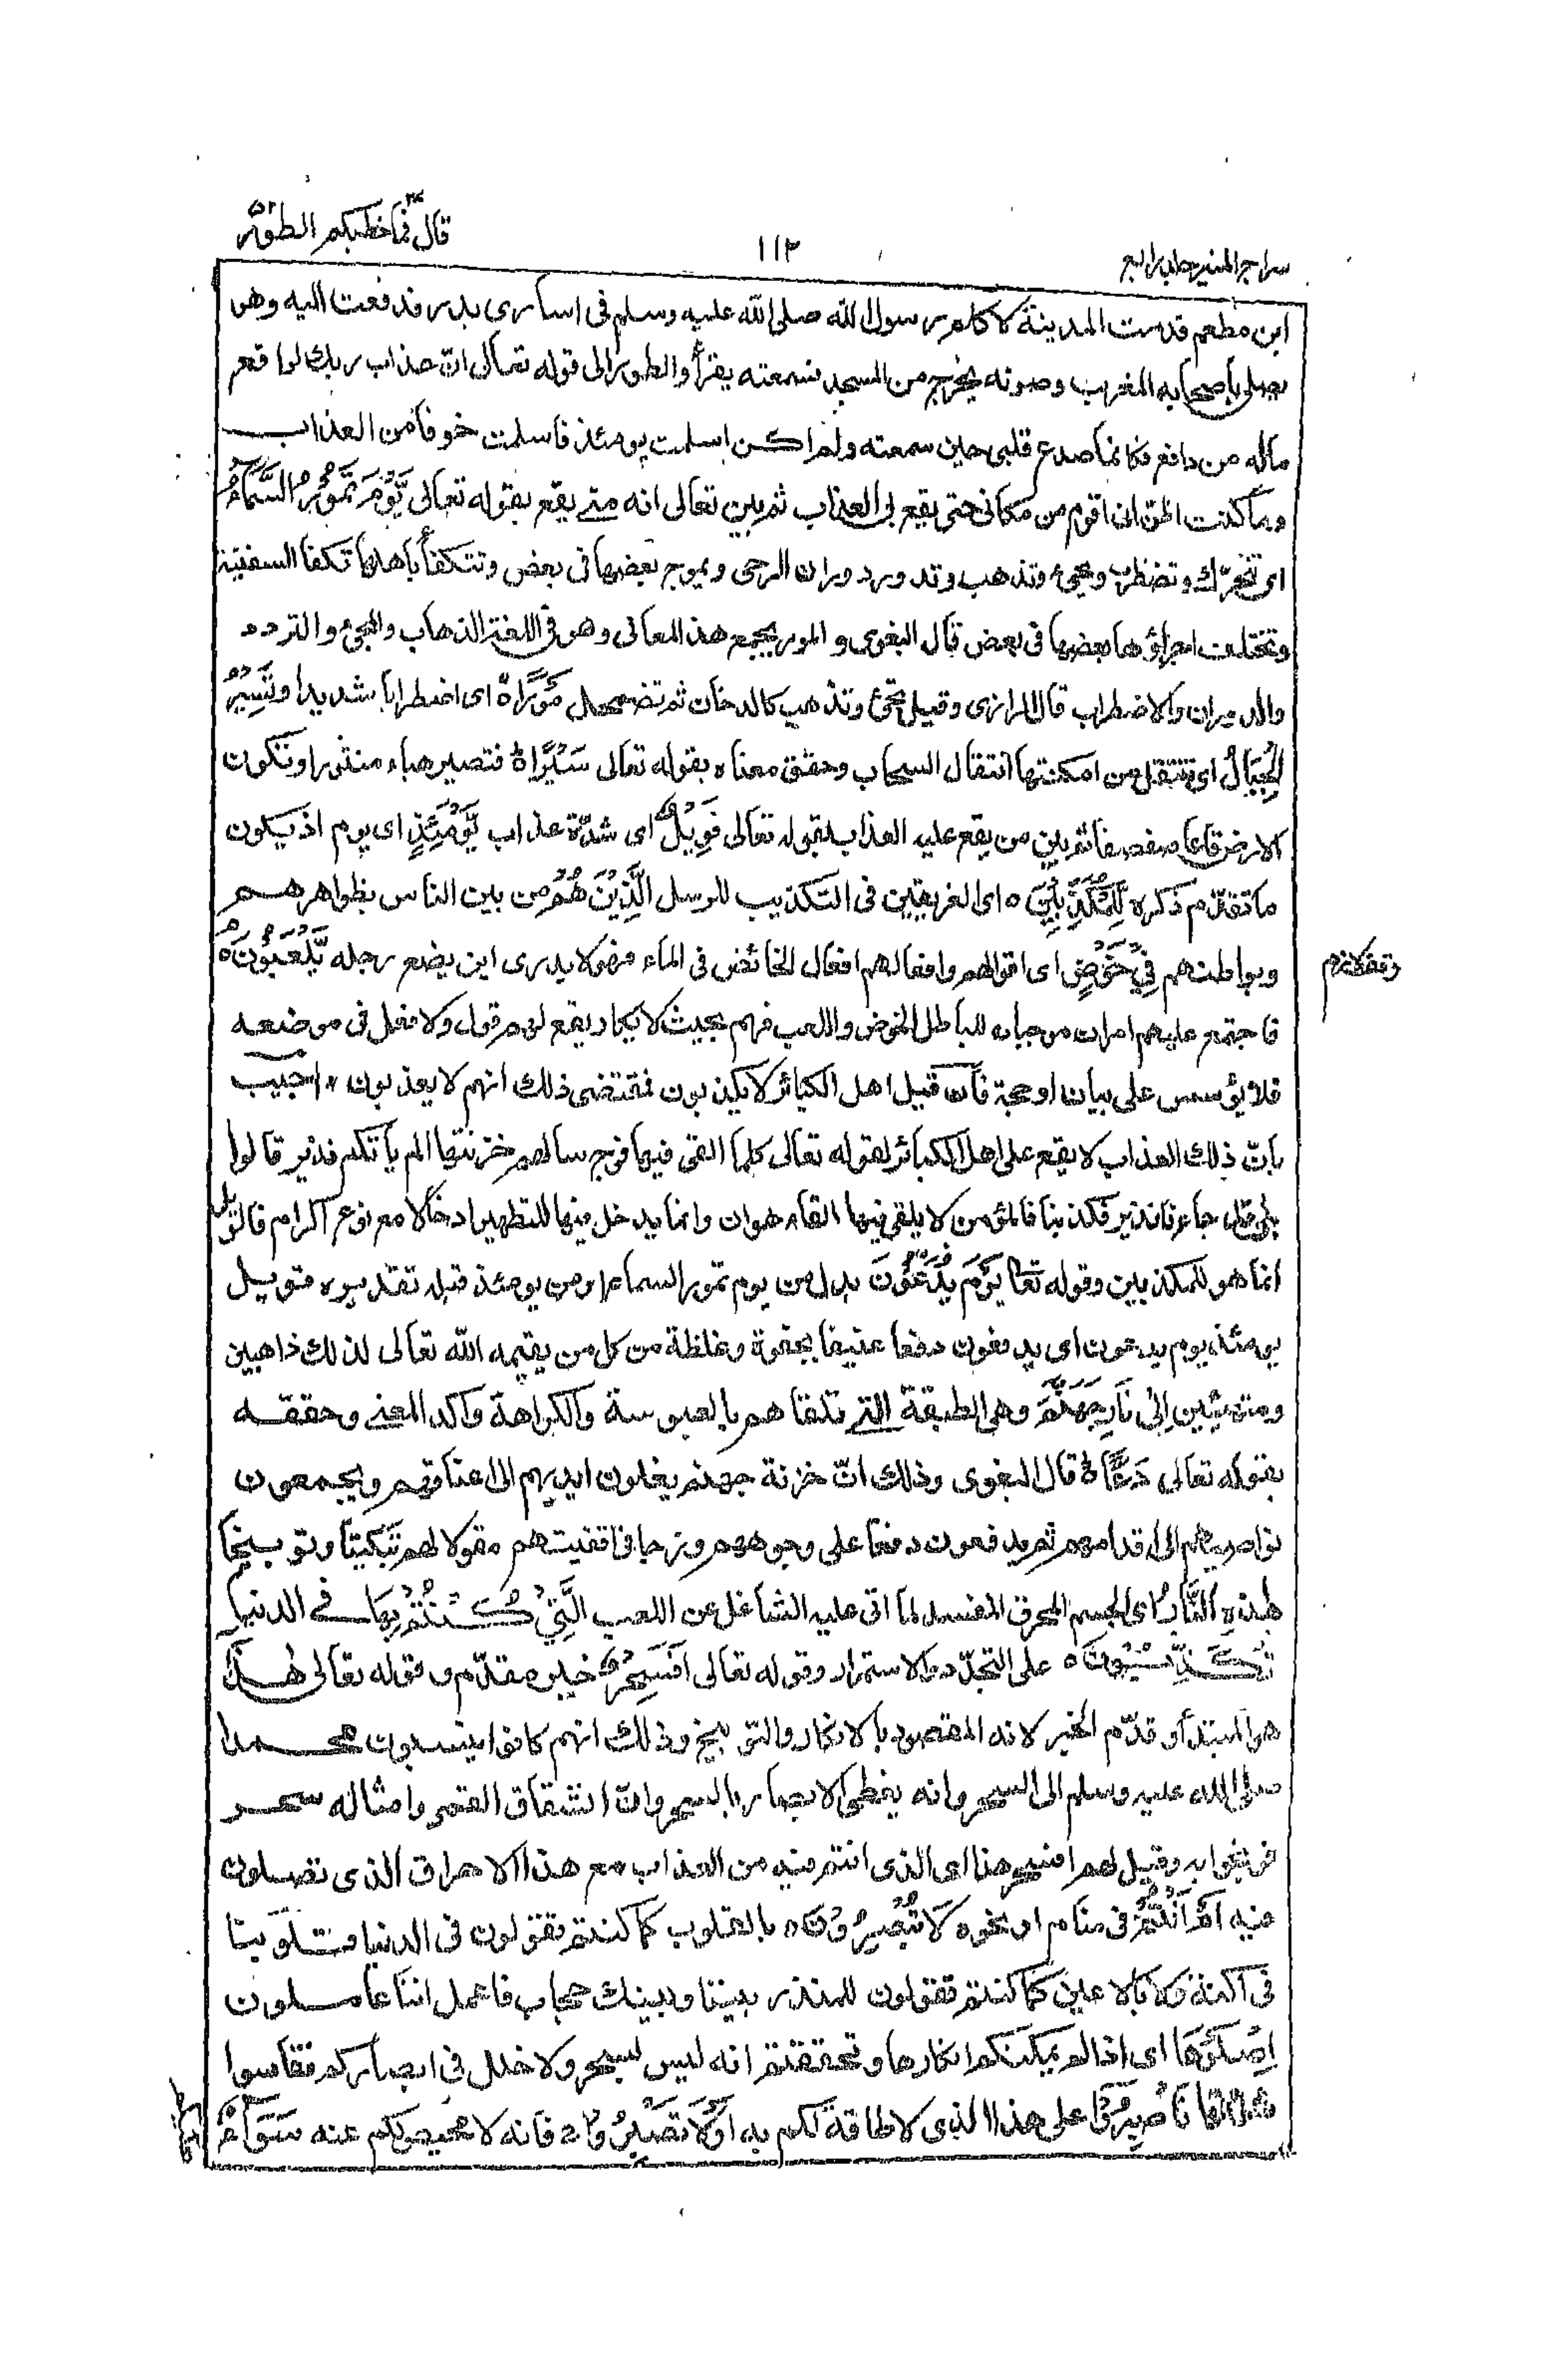 قال فما خطبكم ٢٧ الطور ٥٢
١١٢
سراج المنير جلد رابع
ابن مطعم قدمت المدينة لاكلم رسول الله صلى الله عليه وسلم فى اسارى بدر فدفعت اليه وهو
يصلى باصحابه المغرب وصوته يخرج من المسجد فسمعته يقرأ والطور الى قوله تعالى انّ عذاب ربك لواقع
ماله من دافع فكانما صدع قلبى حين سمعته ولم اكن اسلمت يومئذ فاسلمت خوفا من العذاب
وما كنت اظن انى اقوم من مكانى حتى يقع بى العذاب ثم بين تعالى انه متى يقع بقوله تعالى يَّوْمَ تَمُوْرُ السَّمَآءُ
اى تتحرّك وتضطرب وتجىء وتذهب وتدور دوران الرحى ويموج بعضها فى بعض وتتكفأ باهلها تكفأ السفينة
وتختلف اجزاؤها بعضها فى بعض قال البغوى والمور يجمع هذه المعانى وهو فى اللغة الذهاب والمجىء والتردد
والدوران والاضطراب قال الرازى وقيل تجىء وتذهب كالدخان ثم تضمحل مَوْرًا ۝ اى اضطرابا شديدا وَّتَسِيْرُ
الْجِبَالُ اى تنتقل من امكنتها انتقال السحاب وحقق معناه بقوله تعالى سَيْرًا ۝ فتصير هباء منثورا وتكون
الارض قاعا صفصفا ثم بين من يقع عليه العذاب بقوله تعالى فَوَيْلٌ اى شدّة عذاب يَّوْمَئِذٍ اى يوم اذ يكون
ما تقدّم ذكره لِّلْمُكَذِّبِيْنَ ۝ اى الغريقين فى التكذيب للرسل الَّذِيْنَ هُمْ من بين الناس بظواهرهم
وبواطنهم فِيْ خَوْضٍ اى اقوالهم وافعالهم افعال الخائض فى الماء فهو لا يدرى اين يضع رجله يَّلْعَبُوْنَ ۝
وقف لازم
فاجتمع عليهم امران موجبان للباطل الخوض واللعب فهم بحيث لا يكاد يقع لهم قول ولا فعل فى موضعه
فلا يؤسس على بيان او حجة فان قيل اهل الكبائر لا يكذبون فقتضى ذلك انهم لا يعذبون اجيب
بانّ ذلك العذاب لا يقع على اهل الكبائر لقوله تعالى كلما القى فيها فوج سالهم خزنتها الم ياتكم نذير قالوا
بلى قد جاءنا نذير فكذبنا فالمؤمن لا يلقى فيها القاء هوان وانما يدخل فيها للتطهير ادخالا مع نوع اكرام فالويل
انما هو للمكذبين وقوله تعالى يَوْمَ يُدَعُّوْنَ بدل من يوم تمور السماء او من يومئذ قبله تقديره فويل
يومئذ يوم يدعون اى يدفعون دفعا عنيفا بجفوة وغلظة من كل من يقيمه الله تعالى لذلك ذاهبين
ومنتهيئين اِلٰى نَارِ جَهَنَّمَ وهى الطبقة التى تلقاهم بالعبوسة والكراهة واكد المعنى وحققه
بقوله تعالى دَعًّا ۝ قال البغوى وذلك انّ خزنة جهنم يغلون ايديهم الى اعناقهم ويجمعون
نواصيهم الى اقدامهم ثم يدفعون دفعا على وجوههم وزجا فى اقفيتهم مقولا لهم تبكيتا وتوبيخا
هٰذِهِ النَّارُ اى الجسم المحرق المفسد لما اتى عليه الشاغل عن اللعب الَّتِيْ كُنْتُمْ بِهَا فى الدنيا
تُكَذِّبُوْنَ ۝ على التجدّد والاستمرار وقوله تعالى اَفَسِحْرٌ خبر مقدّم وقوله تعالى هٰذَا
هو المبتدأ وقدّم الخبر لانه المقصود بالانكار والتوبيخ وذلك انهم كانوا ينسبون محمدا
صلى الله عليه وسلم الى السحر وانه يغطى الابصار بالسحر وانّ انشقاق القمر وامثاله سحر
فوبخوا به وقيل لهم افسحر هذا اى الذى انتم فيه من العذاب مع هذا الاحراق الذى تصلون
منه اَمْ اَنْتُمْ فى منام او نحوه لَا تُبْصِرُوْنَ ۝ بالقلوب كما كنتم تقولون فى الدنيا قلوبنا
فى اكنة ولا بالاعين كما كنتم تقولون للمنذر بيننا وبينك حجاب فاعمل اننا عاملون
اِصْلَوْهَا اى اذا لم يمكنكم انكارها وتحققتم انه ليس بسحر ولا خلل فى ابصاركم فقاسوا
شدّتها فَاصْبِرُوْٓا على هذا الذى لا طاقة لكم به اَوْ لَا تَصْبِرُوْا ۚ فانه لا محيص لكم عنه سَوَآءٌ